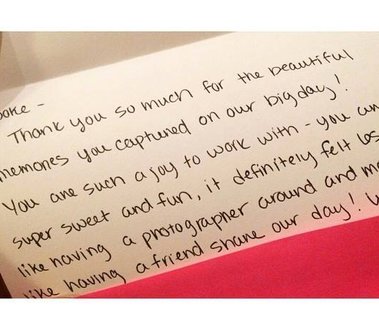 ooke -
Thank you so much for the beautiful
memories you captured on our big day!
You are such a joy to work with - you are
super sweet and fun, it definitely felt
like having a photographer around and
like having a friend share our day!